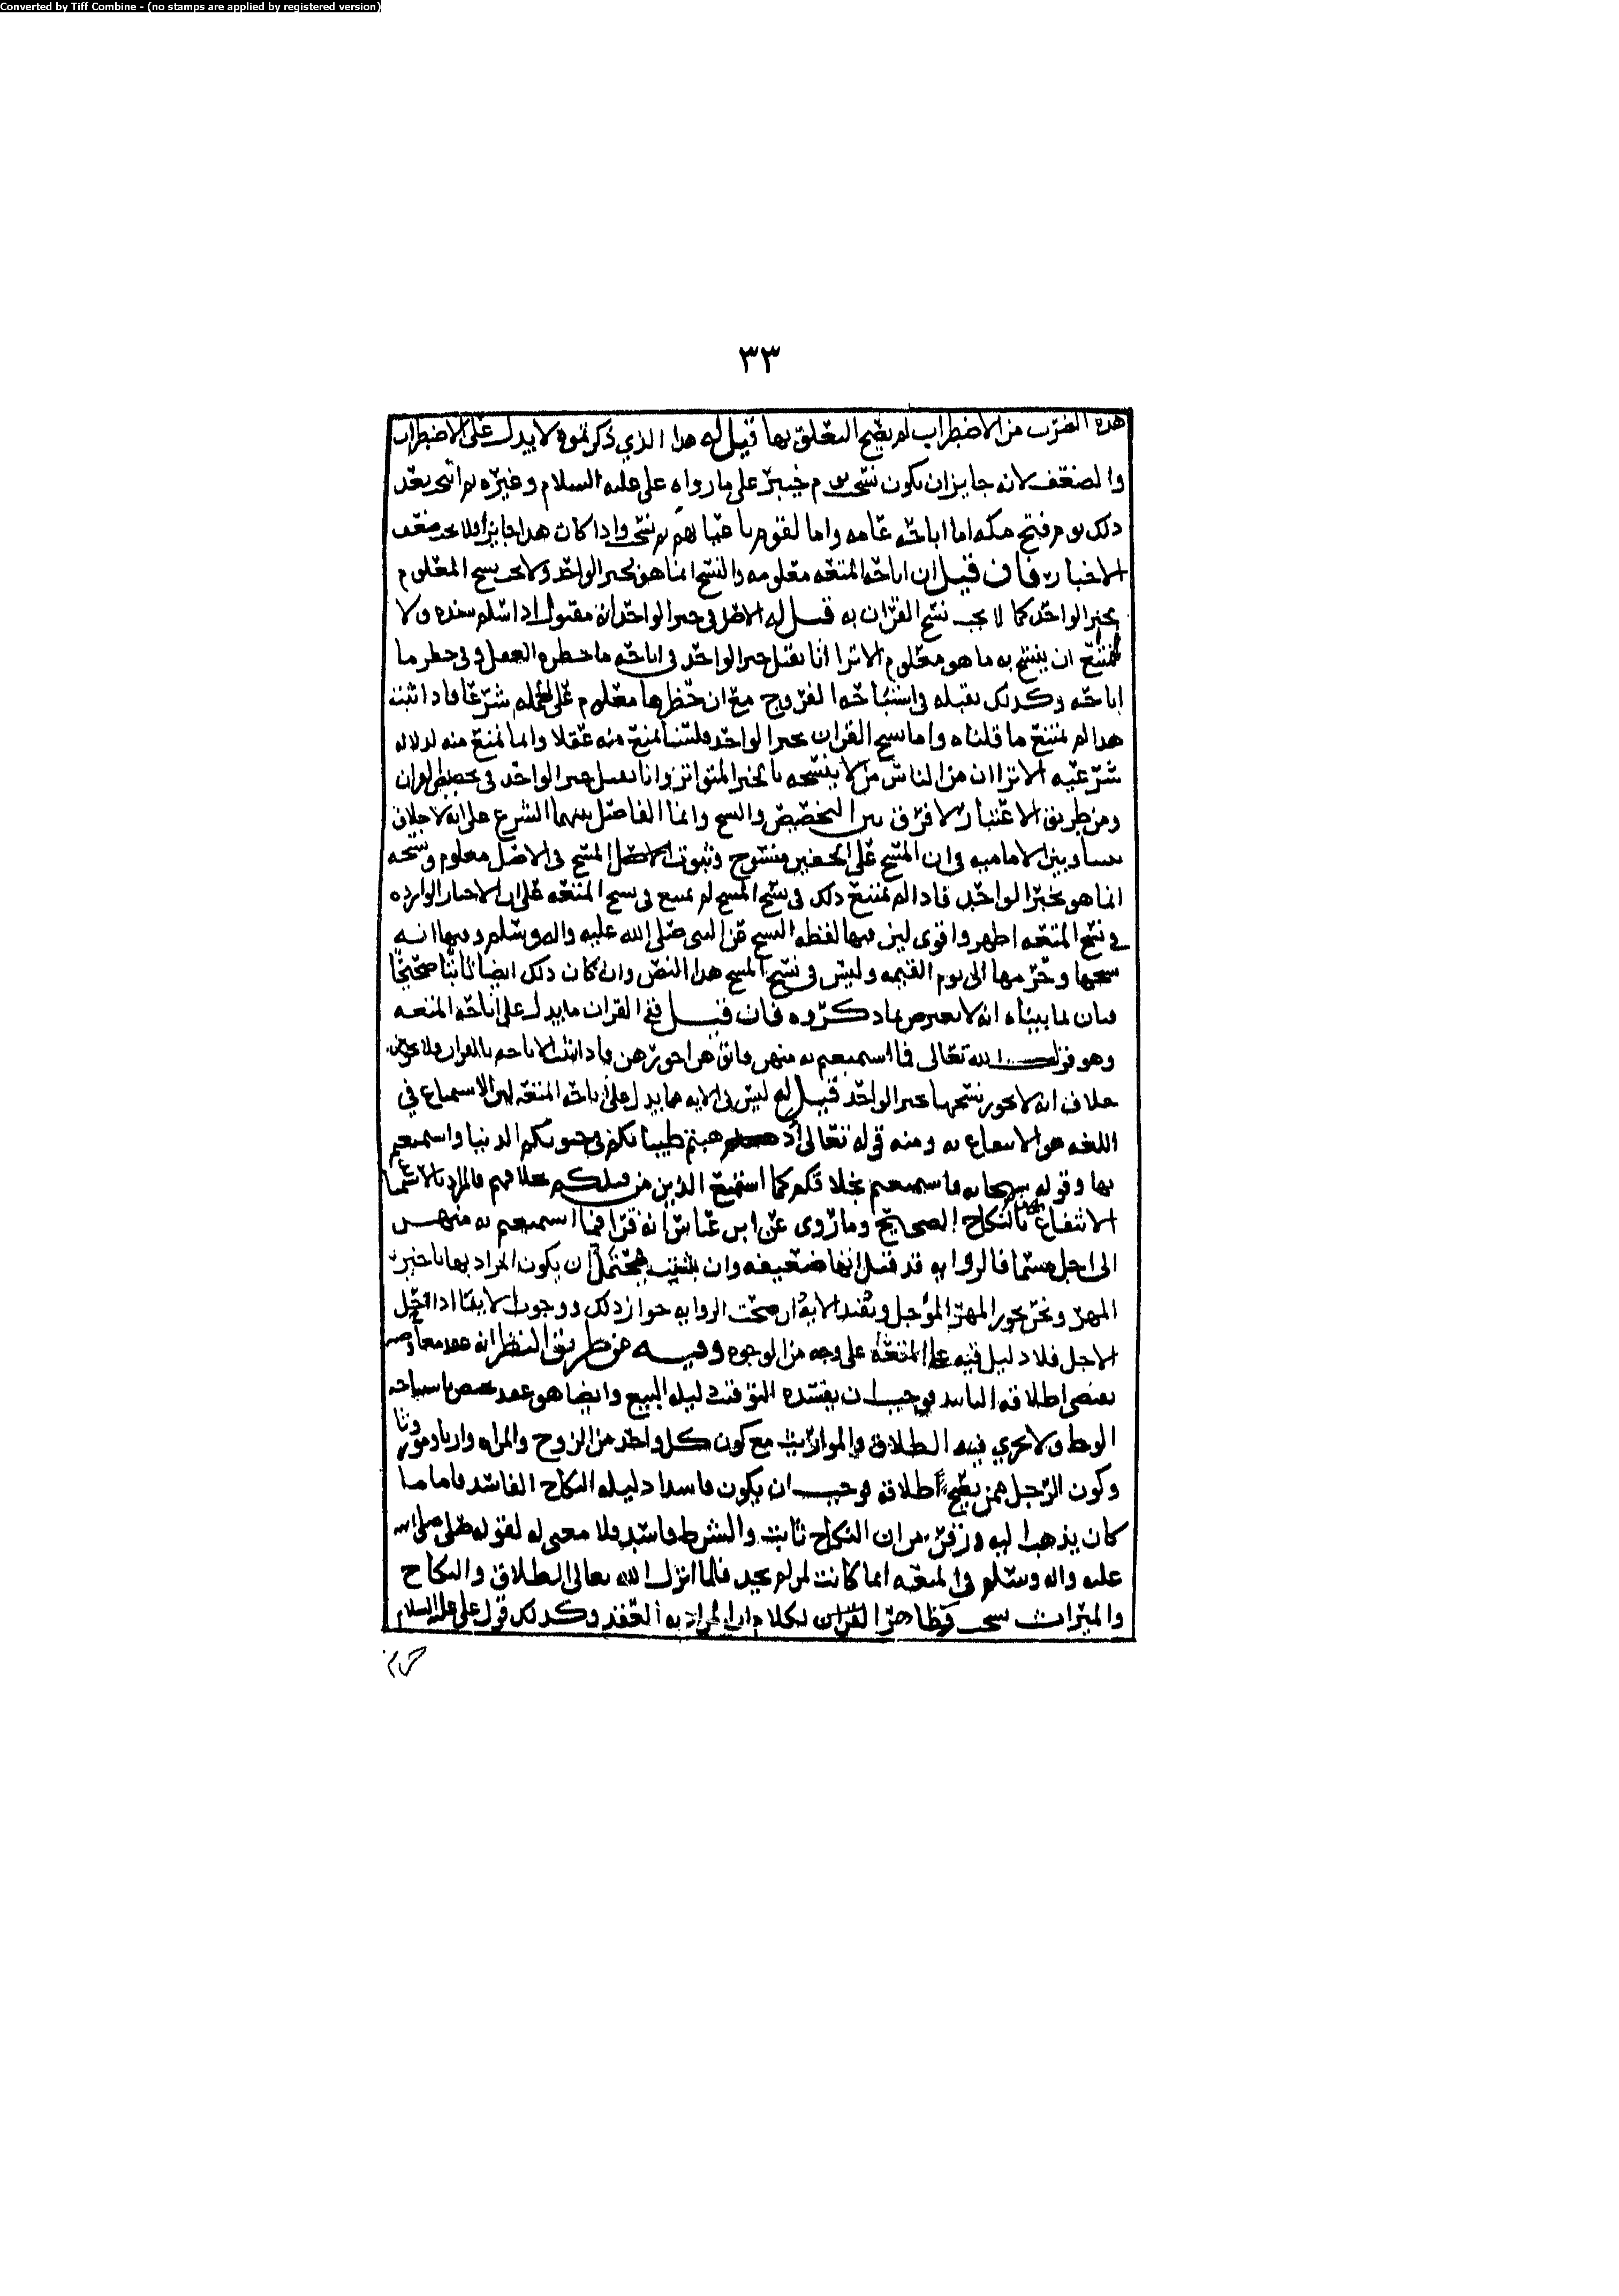 Converted by Tiff Combine - (no stamps are applied by registered version)
٣٣
هذه الضرب من الاضطراب لم يصح التعلق بها قيل له هذا الذي ذكرتموه لا يدل على الاضطراب
والضعف لانه جايز ان يكون نسخت يوم خيبر على ما رواه على عليه السلام وغيره ثم ابيحت بعد
ذلك يوم فتح مكه اما اباحه عامه واما لقوم باعيانهم ثم نسخت واذا كان هذا جايزا فلا يجب ضعف
الاخبار فان قيل ان اباحه المتعه معلومه والنسخ انما هو بخبر الواحد ولا يجب نسخ المعلوم
بخبر الواحد كما لا يجب نسخ القران به قيل له الاصل في خبر الواحد انه مقبول اذا سلم سنده ولا
يمتنع ان ينسخ به ما هو معلوم الا ترا انا نقبل خبر الواحد في اباحه ما حظره العقل وفي حظر ما
اباحه وكذلك نقبله في استباحه الفروج مع ان حظرها معلوم على الجمله شرعا فاذا ثبت
هذا لم يمتنع ما قلناه واما نسخ القران بخبر الواحد فلسنا نمنع منه عقلا وانما نمنع منه لدلاله
شرعيه الا ترا ان من الناس من لا ينسخه بالخبر المتواتر وانا نقبل خبر الواحد في تخصيص القران
ومن طريق الاعتبار لا فرق بين التخصيص والنسخ وانما الفاصل بينهما الشرع على انه لا خلاف
بيننا وبين الاماميه في ان المسح على الخفين منسوخ وثبوت المسح في الاصل معلوم ونسخه
انما هو بخبر الواحد فاذا لم يمتنع ذلك في نسخ المسح لم يمتنع في نسخ المتعه على ان الاخبار الوارده
في نسخ المتعه اظهر واقوى لان فيها لفظه النسخ عن النبى صلى الله عليه واله وسلم وفيها انه
نسخها وحرمها الى يوم القيمه وليس في نسخ المسح هذا النص وان كان ذلك ايضا ثابتا صحيحا
فبان لما بيناه انه لا يعترض بما ذكروه فان قيل ففي القران ما يدل على اباحه المتعه
وهو قول الله تعالى فما استمتعتم به منهن فاتوهن اجورهن فاذا ثبت الاباحه بالقران فلا
خلاف انه لا يجوز نسخها بخبر الواحد قيل له ليس في الايه ما يدل على اباحه المتعه لان الاستمتاع في
اللغه هو الانتفاع به ومنه قوله تعالى اذهبتم طيباتكم في حيوتكم الدنيا واستمتعتم
بها وقوله سبحانه فاستمتعتم بخلاقكم كما استمتع الذين من قبلكم بخلاقهم فالمراد بالاستمتاع
الانتفاع بهن بالنكاح الصحيح وما روى عن ابن عباس انه قرا فما استمتعتم به منهن
الى اجل مسما فالروايه قد قيل انها ضعيفه وان ثبتت فيحتمل ان يكون المراد بها تاخير
المهر ونحن نجوز المهر المؤجل وتفيد الايه ان صحت الروايه جواز ذلك ووجوب الايفا اذا حل
الاجل فلا دليل فيه على المتعه على وجه من الوجوه وفيه من طريق النظر انه عقد معاوضه
يقتضى اطلاقه التابيد فوجب ان يفسده التوقيت دليله البيع وايضا هو عقد يختص باستباحه
الوطء ولا يجري فيه الطلاق والمواريث مع كون كل واحد من الزوج والمراه وارثا وموروثا
وكون الرجل ممن يصح اطلاقه فوجب ان يكون فاسدا دليله النكاح الفاسد فاما ما
كان يذهب اليه زفر من ان النكاح ثابت والشرط فاسد فلا معنى له لقوله صلى الله
عليه واله وسلم في المتعه انما كانت لمن لم يجد فلما انزل الله تعالى الطلاق والنكاح
والميراث نسخت وظاهر الكلام ان المراد به العقد وكذلك قول على عليه السلام